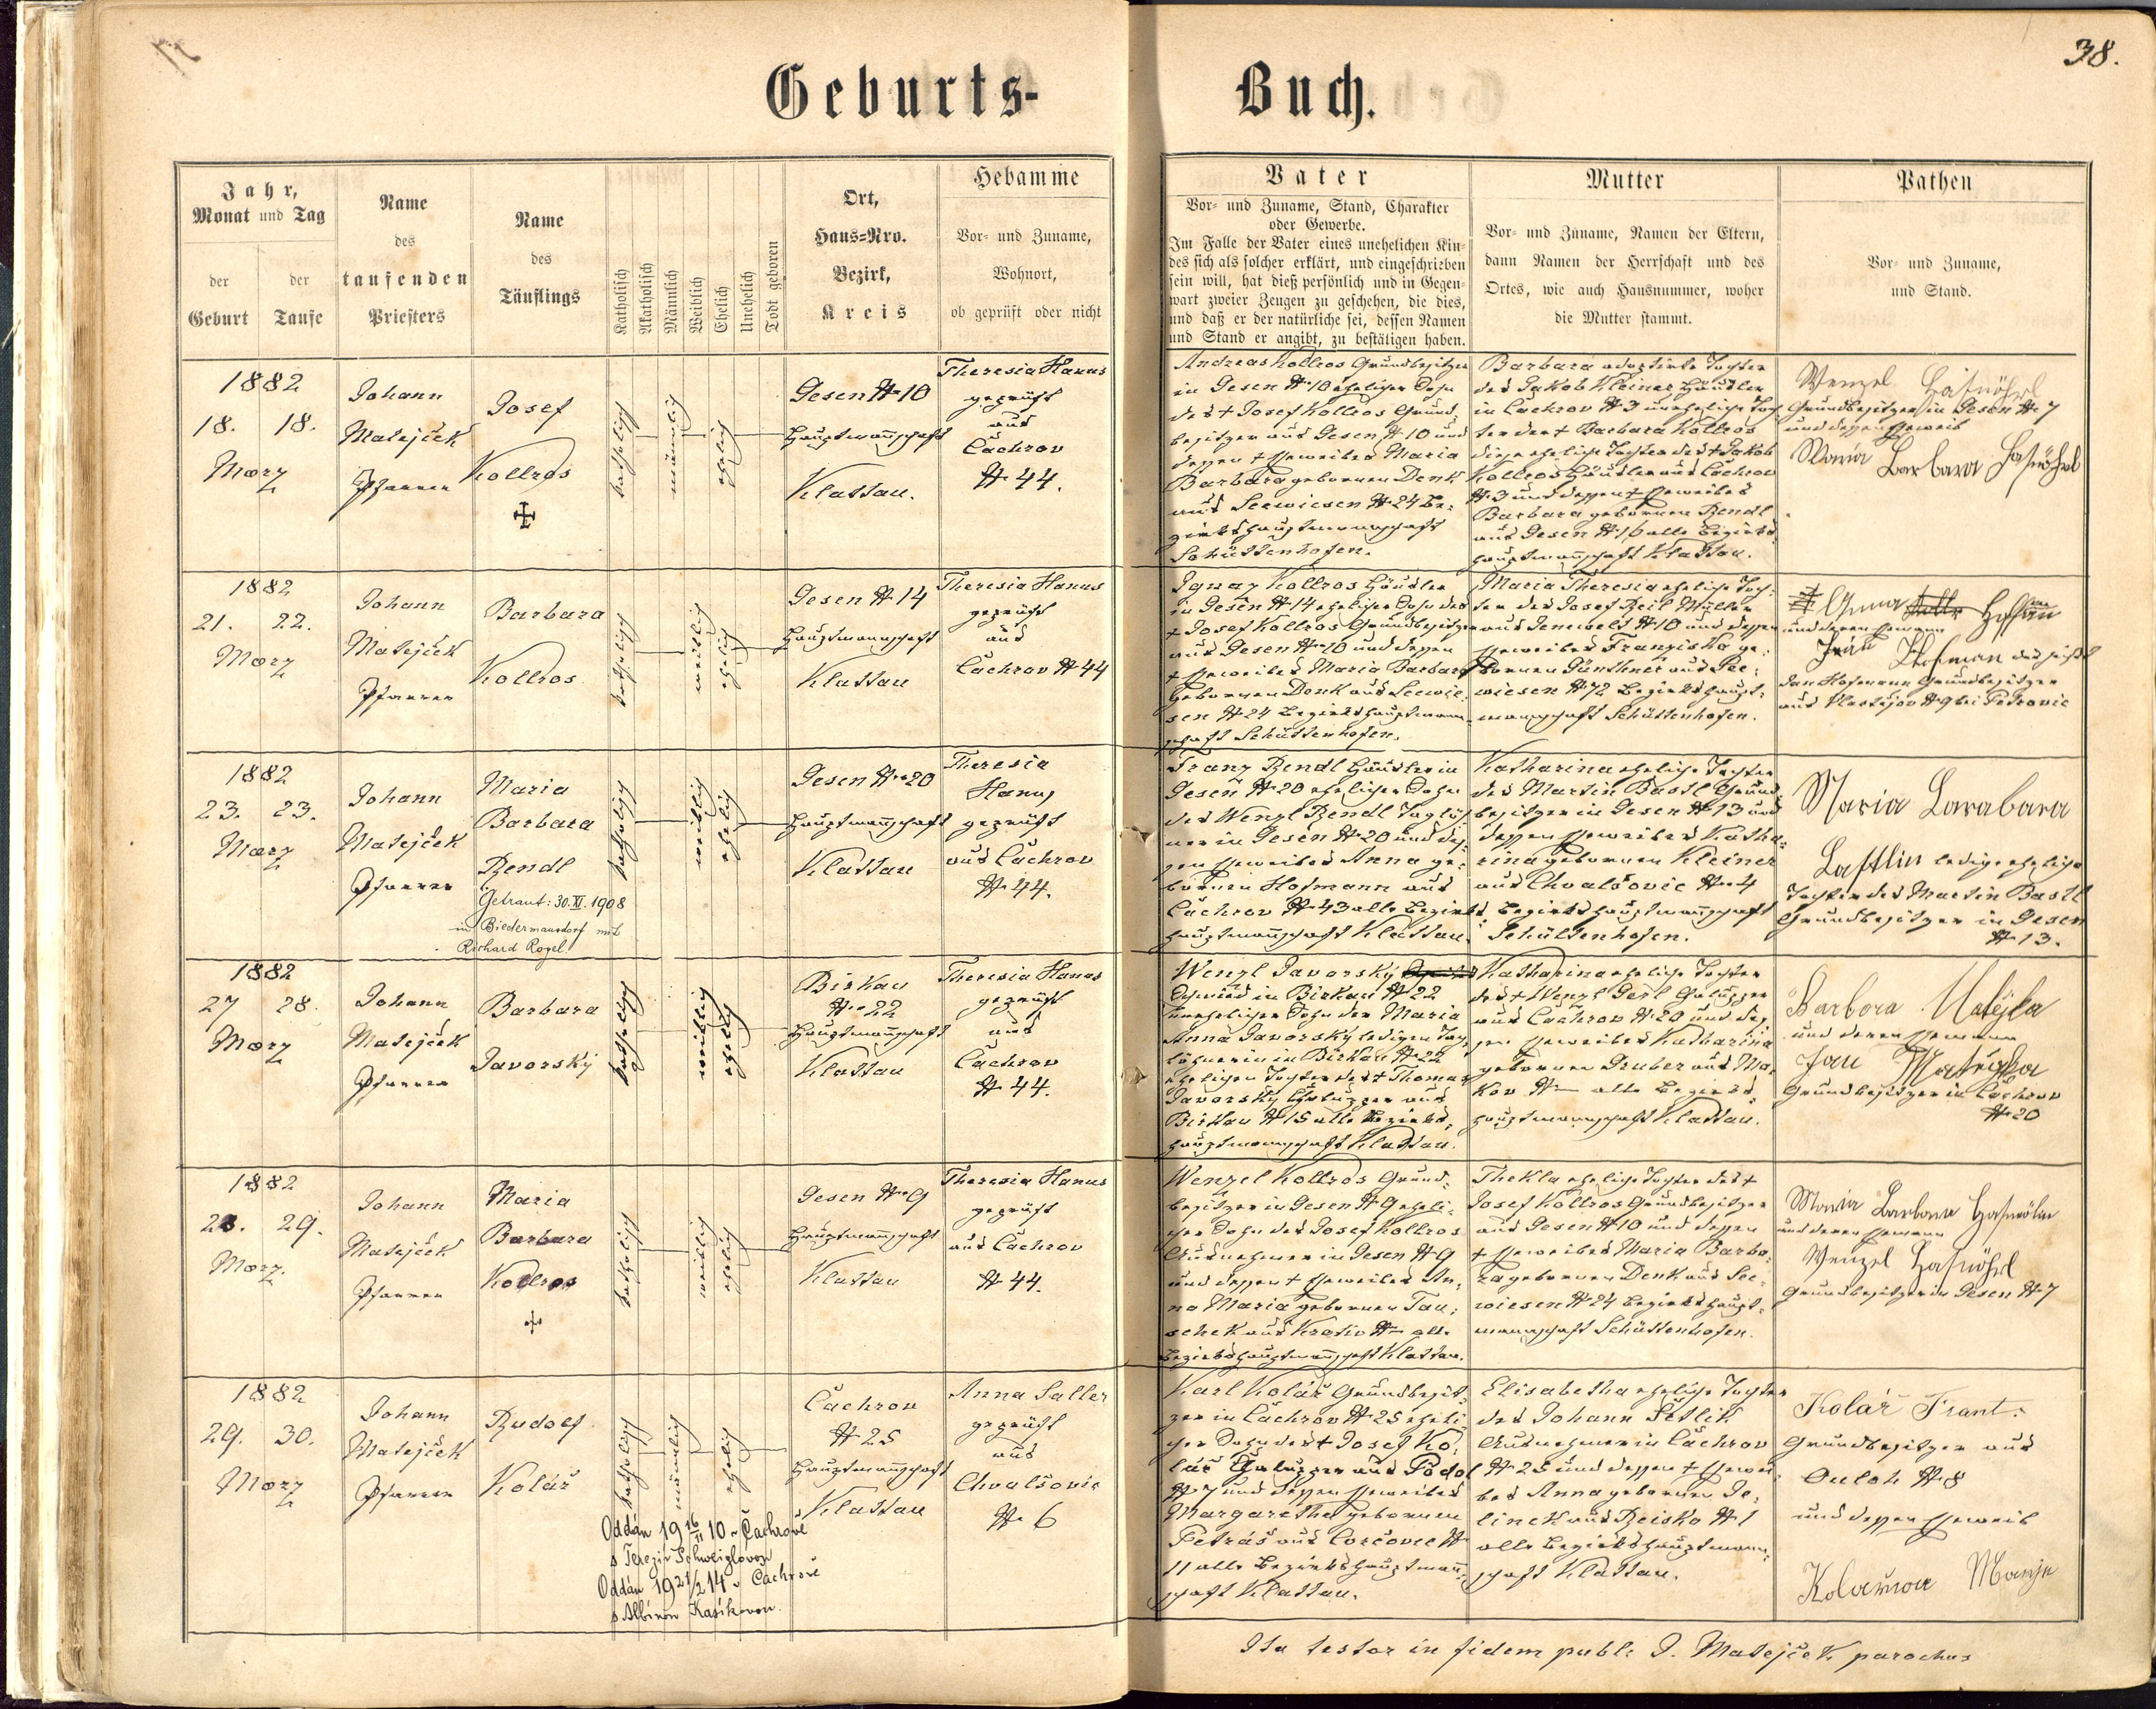 38.
Geburts-
Buch.
Jahr,
Monat und Tag
der Geburt
der Taufe
Name
des
taufenden
Priesters
Name
des
Täuflings
Katholisch
Akatholisch
Männlich
Weiblich
Ehelich
Unehelich
Todt geboren
Ort,
Haus-Nro.
Bezirk,
Kreis
Hebamme
Vor- und Zuname,
Wohnort,
ob geprüft oder nicht
Vater
Vor- und Zuname, Stand, Charakter
oder Gewerbe.
Im Falle der Vater eines unehelichen Kin-
des sich als solcher erklärt, und eingeschrieben
sein will, hat dieß persönlich und in Gegen-
wart zweier Zeugen zu geschehen, die dies,
und daß er der natürliche sei, dessen Namen
und Stand er angibt, zu bestätigen haben.
Mutter
Vor- und Zuname, Namen der Eltern,
dann Namen der Herrschaft und des
Ortes, wie auch Hausnummer, woher
die Mutter stammt.
Pathen
Vor- und Zuname,
und Stand.
1882
18. 18.
März
Johann
Matejček
Pfarrer
Josef
Kollros
katholisch
männlich
ehelich
Gesen № 10
Hauptmannschaft
Klattau.
Theresia Hanus
geprüft
aus
Čachrov
№ 44.
Andreas Kollros Grundbesitzer
in Gesen № 10 ehelicher Sohn
des + Josef Kollros Grund-
besitzer aus Gesen № 10 und
dessen + Eheweibes Maria
Barbara geborenen Denk
aus Seewiesen № 24 Be-
zirkshauptmannschaft
Schüttenhofen.
Barbara adoptirte Tochter
des Jakob Kleiner Häusler
in Čachrov № 3 uneheliche Toch-
ter der + Barbara Kollros
diese eheliche Tochter des + Jakob
Kollros Häusler aus Čachrov
№ 3 und dessen + Eheweibes
Barbara geborenen Rendl
aus Gesen № 16 alle Bezirks-
hauptmannschaft Klattau.
Wenzel Hasnöhrl
Grundbesitzer in Gesen № 7
und dessen Eheweib
Maria Barbara Hasnöhrl
1882
21. 22.
März
Johann
Matejček
Pfarrer
Barbara
Kollros
katholisch
weiblich
ehelich
Gesen № 14
Hauptmannschaft
Klattau
Theresia Hanus
geprüft
aus
Čachrov № 44
Ignaz Kollros Häusler
in Gesen № 14 ehelicher Sohn des
+ Josef Kollros Grundbesitzer
aus Gesen № 10 und dessen
+ Eheweibes Maria Barbara
geborenen Denk aus Seewie-
sen № 24 Bezirkshauptmann-
schaft Schüttenhofen.
Maria Theresia eheliche Toch-
ter des Josef Beil Müller
aus № 10 und dessen
Eheweibes Franziska ge-
borenen Günthner aus See-
wiesen № 72 Bezirkshaupt-
mannschaft Schüttenhofen.
Anna Hoffman
und deren Ehemann
Jan Hofman das heißt
Jan Hofmann Grundbesitzer
aus № 9 bei Petrovic
1882
23. 23.
März
Johann
Matejček
Pfarrer
Maria
Barbara
Rendl
Getraut: 30. XI. 1908
in Biedermansdorf mit
Richard Rogel
katholisch
weiblich
ehelich
Gesen № 20
Hauptmannschaft
Klattau
Theresia
Hanus
geprüft
aus Čachrov
№ 44.
Franz Rendl Häusler in
Gesen № 20 ehelicher Sohn
des Wenzl Rendl Taglöh-
ner in Gesen № 20 und des-
sen Eheweibes Anna ge-
borenen Hofmann aus
Čachrov № 43 alle Bezirks-
hauptmannschaft Klattau.
Katharina eheliche Tochter
des Martin Bastl Grund-
besitzer in Gesen № 13 und
dessen Eheweibes Katha-
rina geborenen Kleiner
aus Chvalšovic № 4
Bezirkshauptmannschaft
Schüttenhofen.
Maria Barabara
Bastlin ledige eheliche
Tochter des Martin Bastl
Grundbesitzer in Gesen
№ 13.
1882
27 28.
März
Johann
Matejček
Pfarrer
Barbara
Javorský
katholisch
weiblich
ehelich
Birkau
№ 22
Hauptmannschaft
Klattau
Theresia Hanus
geprüft
aus
Čachrov
№ 44.
Wenzl Javorský
Schmied in Birkau № 22
unehelicher Sohn der Maria
Anna Javorský ledigen Tag-
löhnerin in Birkau № 22
ehelichen Tochter des + Thomas
Javorský Chalupper aus
Birkau № 15 alle Bezirks-
hauptmannschaft Klattau.
Katharina eheliche Tochter
des + Wenzl Chalupper
aus Čachrov № 20 und des-
sen Eheweibes Katharina
geborenen Gruber aus Ma-
kov № — alle Bezirks-
hauptmannschaft Klattau.
Barbora Matejka
und deren Ehemann
Jan Matejka
Grundbesitzer in Čachrov
№ 20
1882
28. 29.
März
Johann
Matejček
Pfarrer
Maria
Barbara
Kollros
katholisch
weiblich
ehelich
Gesen № 9
Hauptmannschaft
Klattau
Theresia Hanus
geprüft
aus Čachrov
№ 44.
Wenzel Kollros Grund-
besitzer in Gesen № 9 eheli-
cher Sohn des Josef Kollros
Ausnehmer in Gesen № 9
und dessen + Eheweibes An-
na Maria geborenen Tau-
schek aus № — alle
Bezirkshauptmannschaft Klattau.
Thekla eheliche Tochter des +
Josef Kollros Grundbesitzer
aus Gesen № 10 und dessen
+ Eheweibes Maria Barba-
ra geborenen Denk aus See-
wiesen № 24 Bezirkshaupt-
mannschaft Schüttenhofen.
Maria Barbara Hasnöhrl
und deren Ehemann
Wenzel Hasnöhrl
Grundbesitzer in Gesen № 7
1882
29. 30.
März
Johann
Matejček
Pfarrer
Rudolf
Kolář
Oddán 19 16/II 10 v Čachrově
s Terezií Schweiglovou
Oddán 19 21/2 14 v Čachrově
s Albínou Kasíkovou.
katholisch
männlich
ehelich
Čachrov
№ 25
Hauptmannschaft
Klattau
Anna Saller
geprüft
aus
Chvalšovic
№ 6
Karl Kolář Grundbesit-
zer in Čachrov № 25 eheli-
cher Sohn des + Josef Ko-
lář Chalupper aus Podol
№ 7 und dessen Eheweibes
Margaretha geborenen
Petráš aus №
11 alle Bezirkshauptmann-
schaft Klattau.
Elisabetha eheliche Tochter
des Johann Šetlik
Ausnehmer in Čachrov
№ 25 und dessen + Ehewei-
bes Anna geborenen Je-
linek aus № 1
alle Bezirkshauptmann-
schaft Klattau.
Kolář Frant.
Grundbesitzer aus
№ 8
und dessen Eheweib
Kolařova Marje
Ita testor in fidem publ: J. Matejček parochus